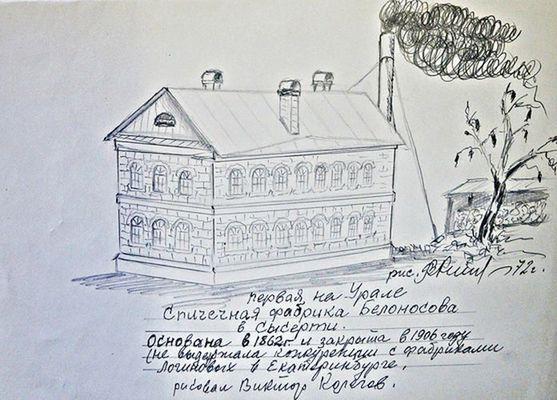 рис. 72г.
первая на Урале
Спичечная фабрика Белоносова
в Сысерти.
Основана в 1862г и закрыта в 1906 году
(не выдержала конкуренции с фабриками
Логиновых в Екатеринбурге,
рисовал Виктор Колегов.